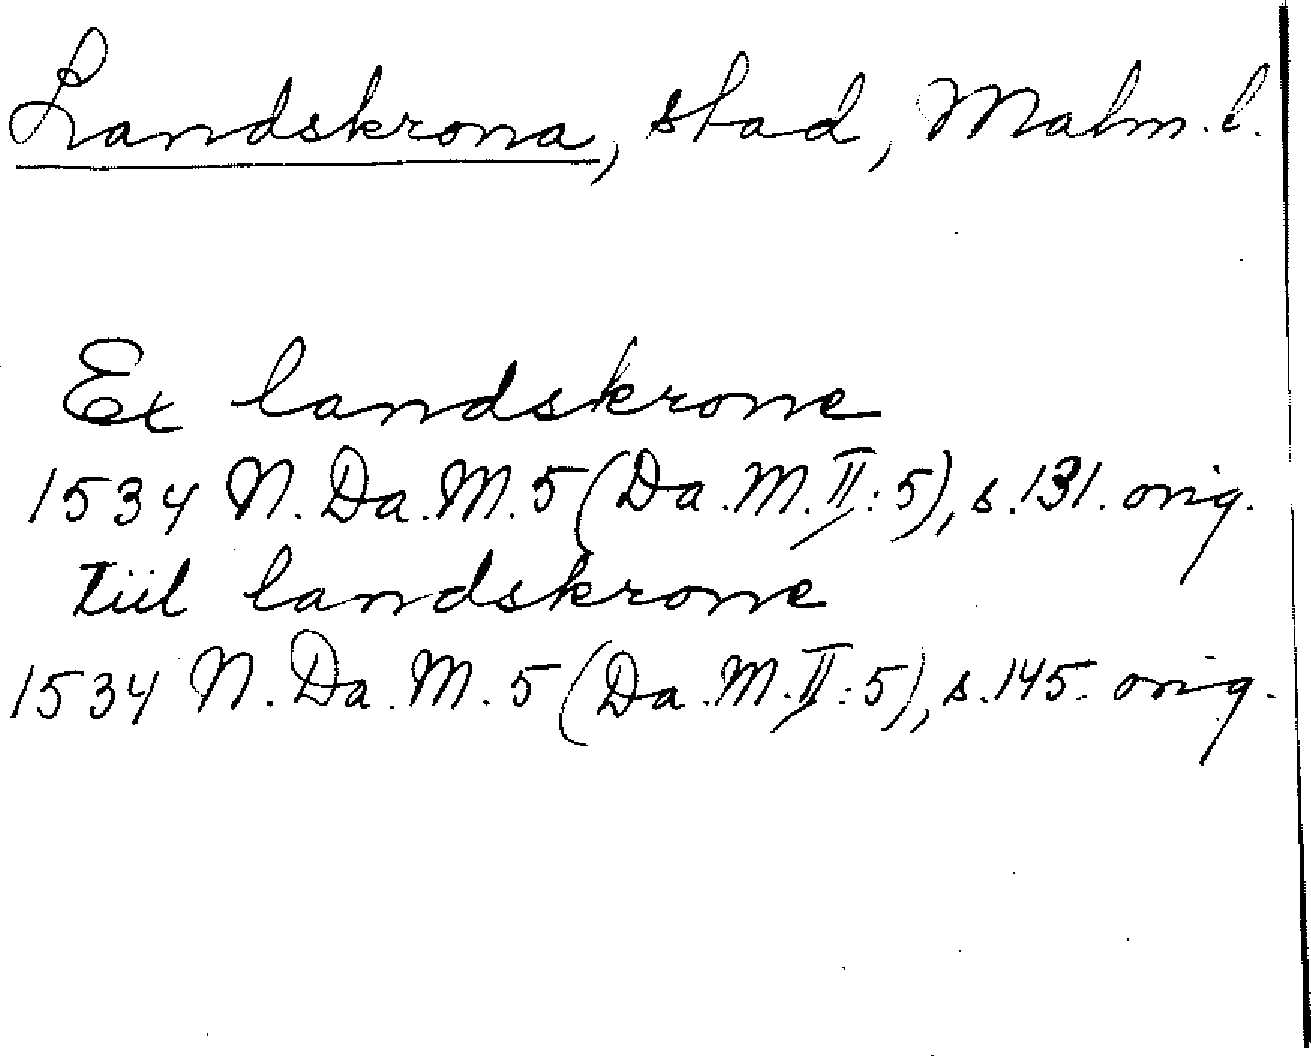 Landskrona, stad, Malm. l.
Ex landskrone
1534 N. Da. M. 5 (Da. M. II: 5), s. 131. orig.
tiil landskrone
1534 N. Da. M. 5 (Da. M. II: 5), s. 145. orig.